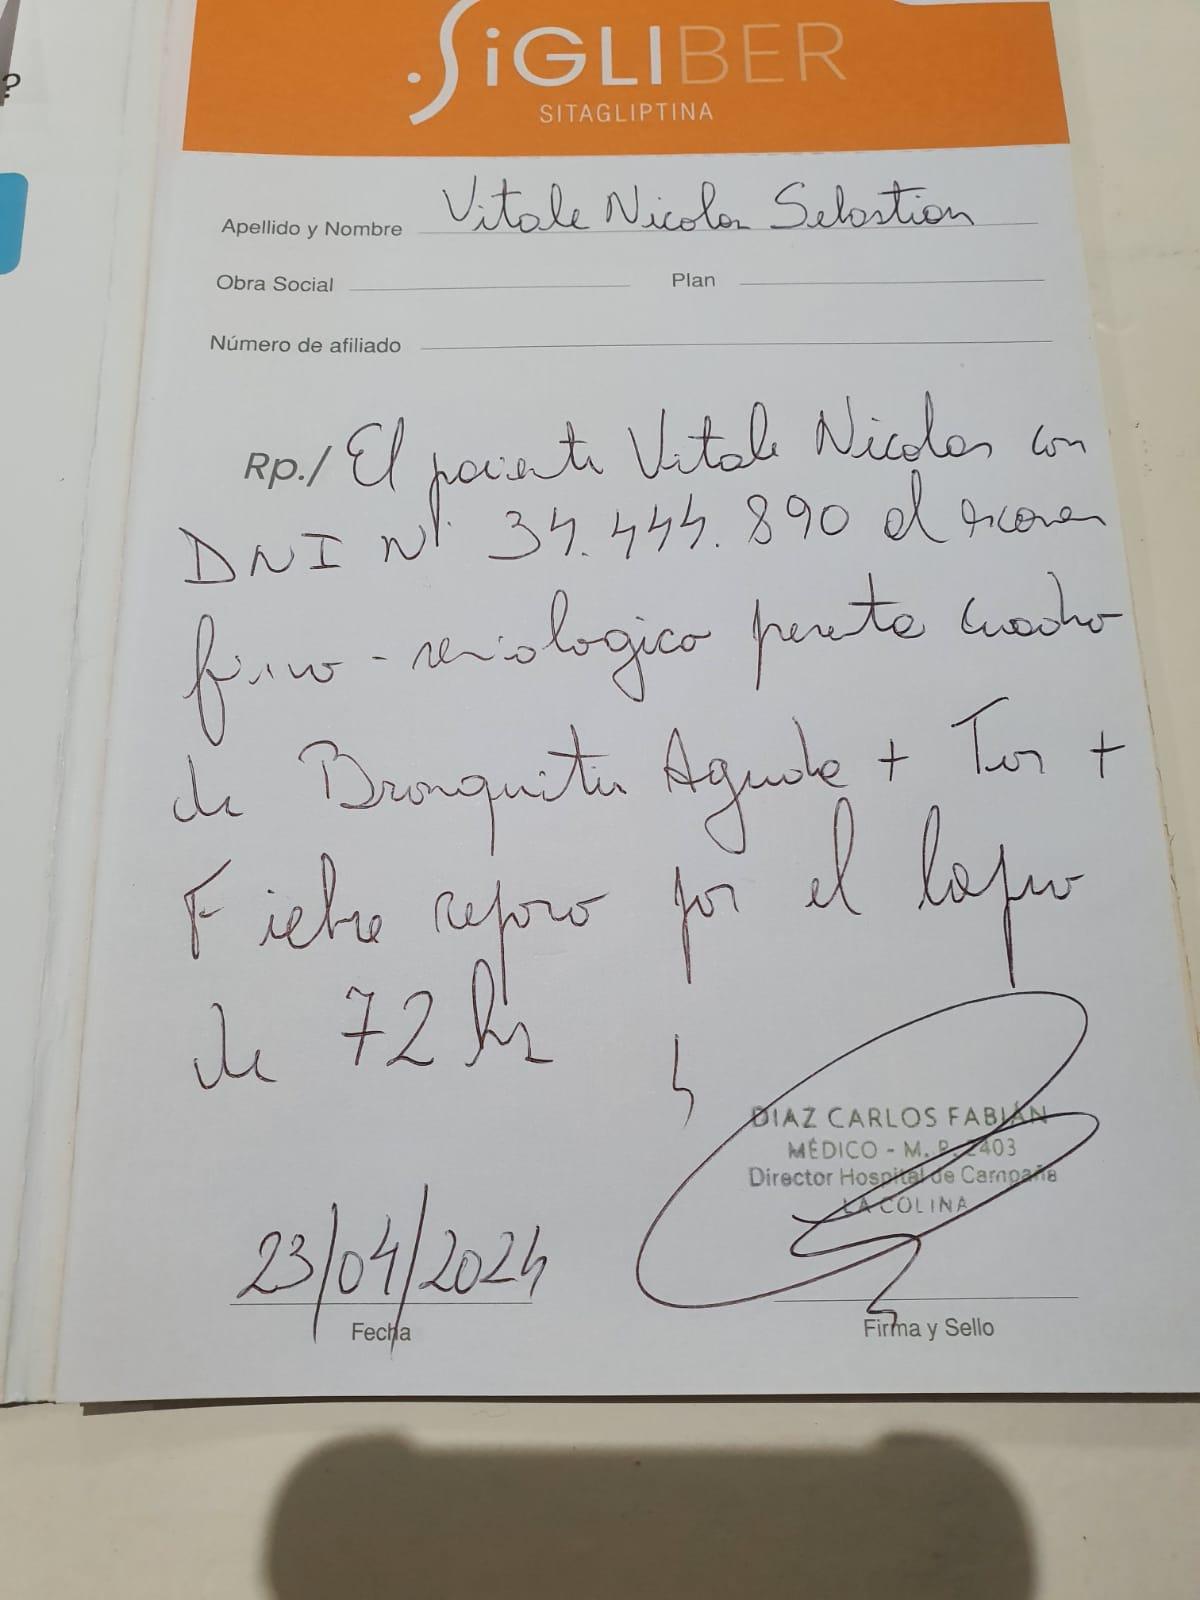 ?
SiGLIBER
SITAGLIPTINA
Apellido y Nombre Vitale Nicolas Sebastian
Obra Social Plan
Número de afiliado
Rp./ El paciente Vitale Nicolas con
DNI N° 34.444.890 al examen
fisico-semiologico presenta cuadro
de Bronquitis Aguda + Tos +
Fiebre reposo por el lapso
de 72 hs
DIAZ CARLOS FABIÁN
MÉDICO - M. P. 2403
Director Hospital de Campaña
LA COLINA
23/04/2024
Fecha Firma y Sello